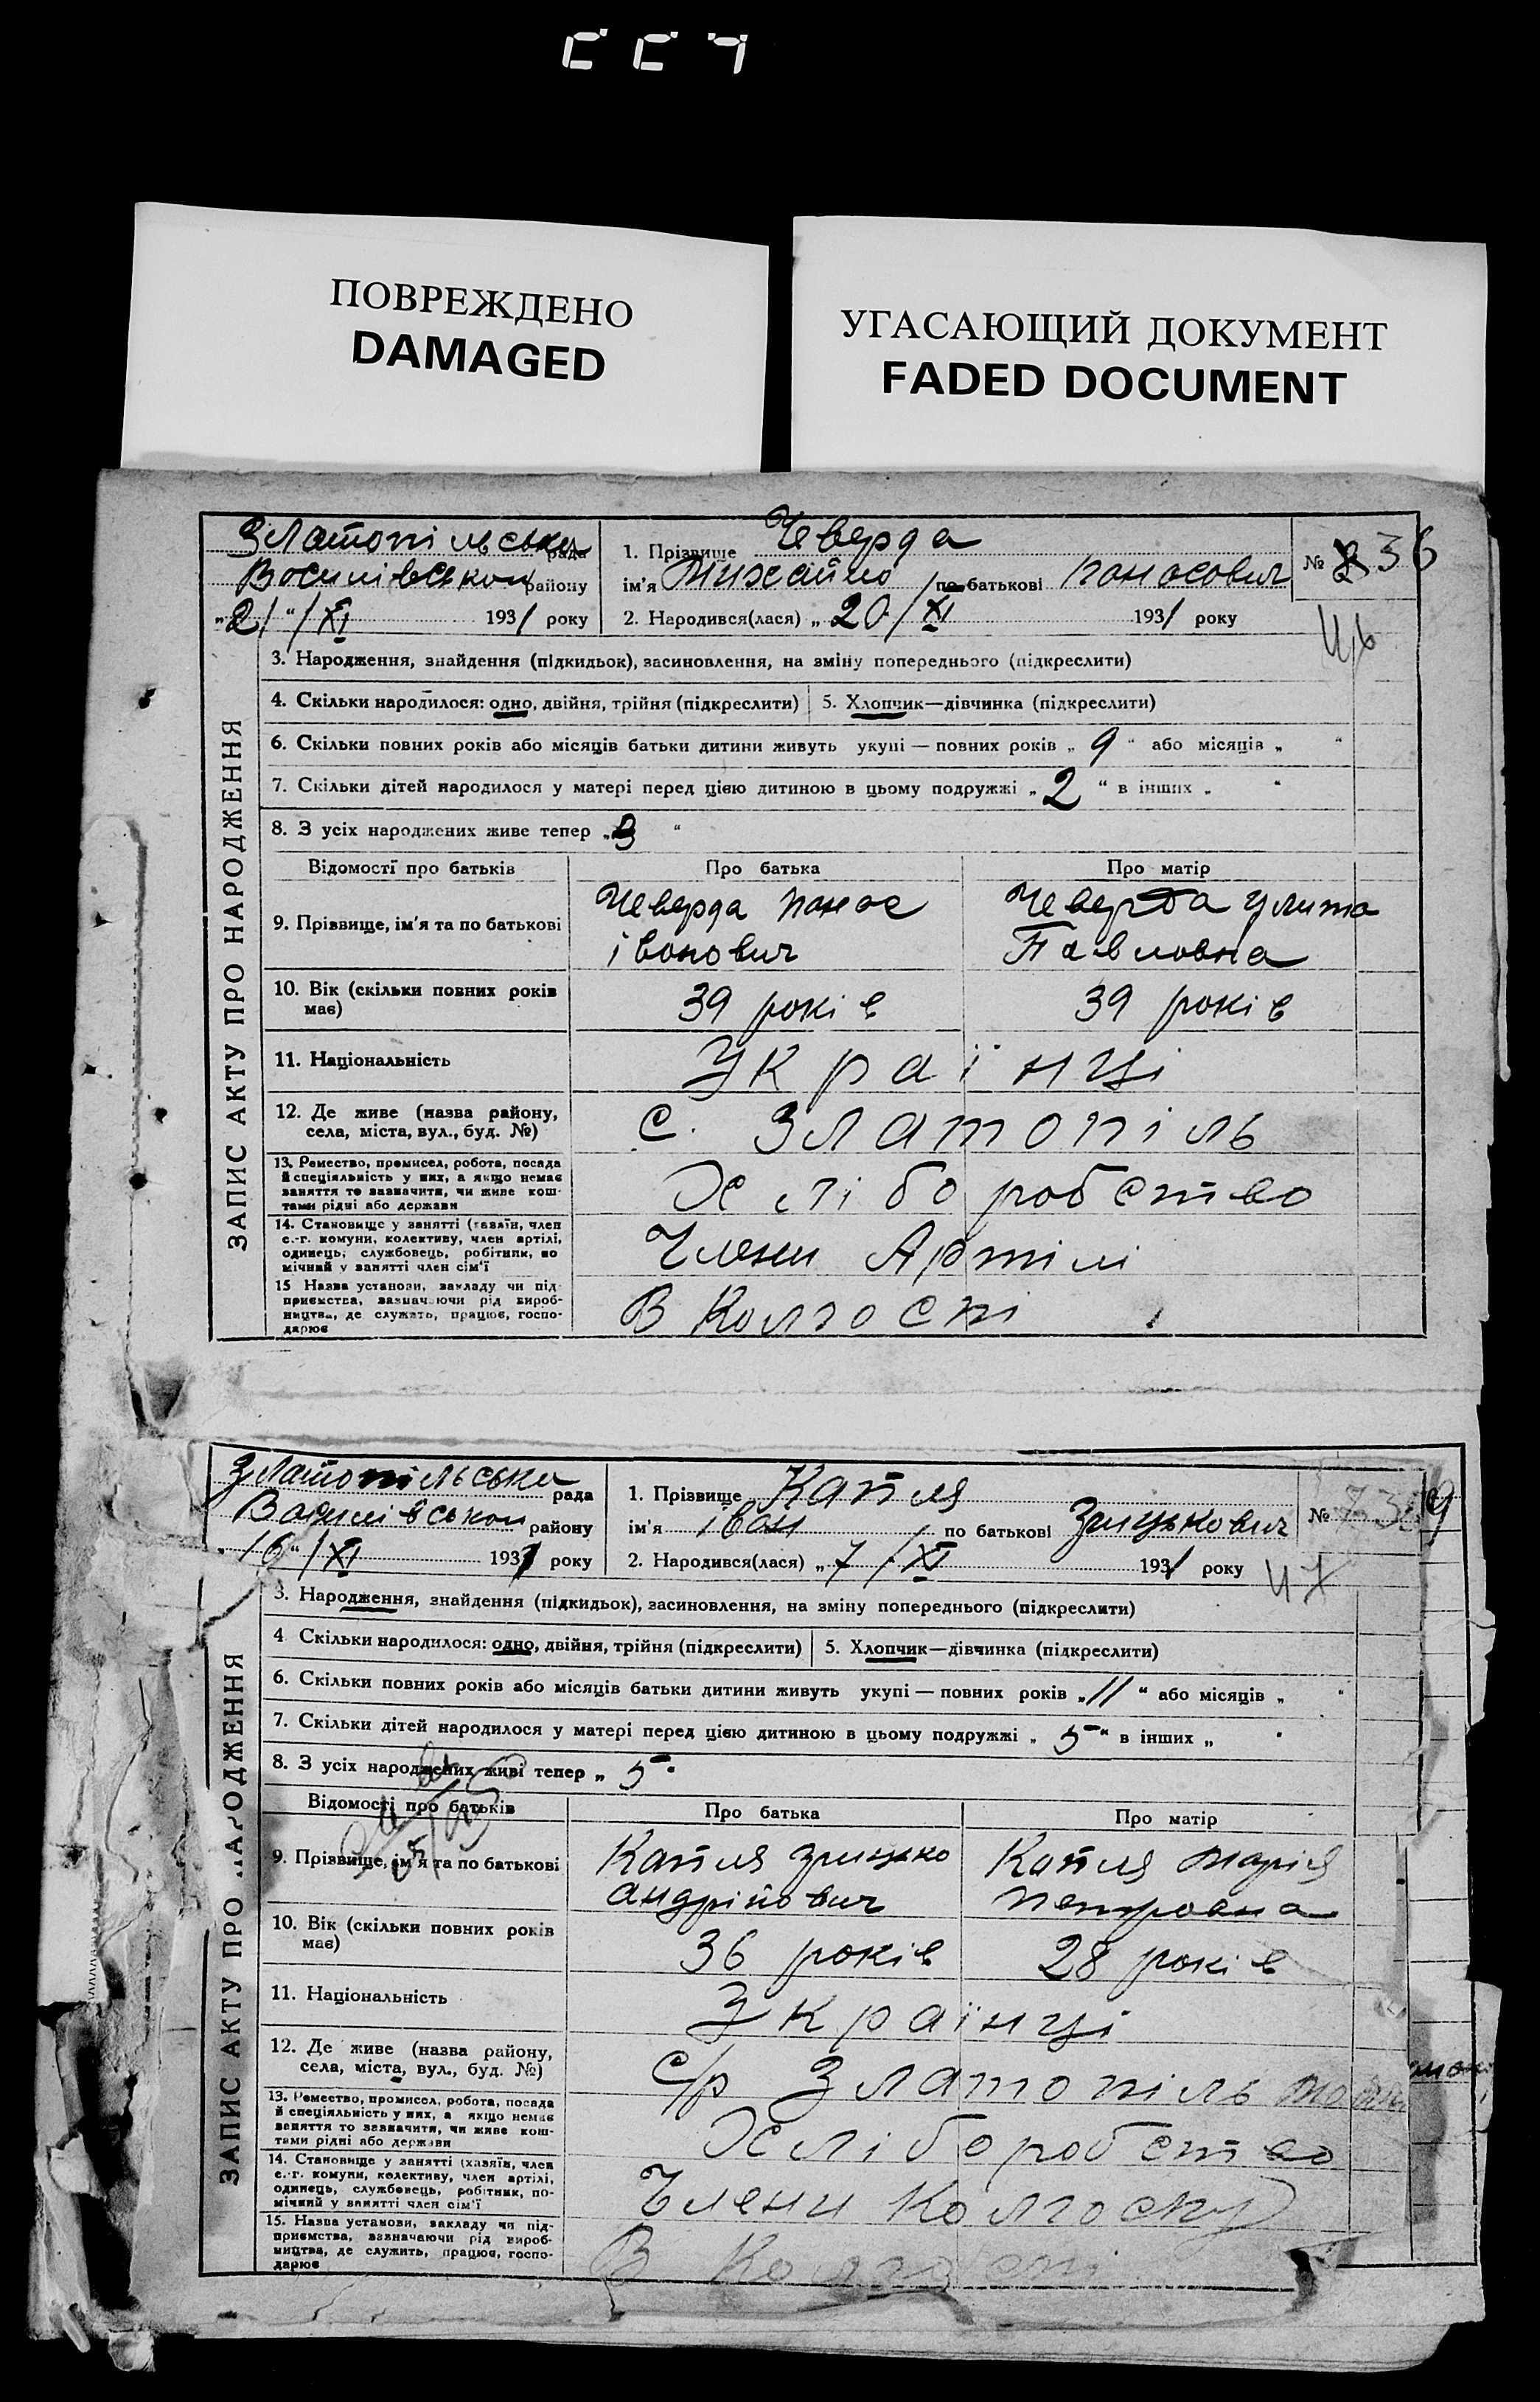 ПОВРЕЖДЕНО
DAMAGED
УГАСАЮЩИЙ ДОКУМЕНТ
FADED DOCUMENT
ЗАПИС АКТУ ПРО НАРОДЖЕННЯ
Златопільська рада
Василівськои району
„21“/XI 1931 року
1. Прізвище Чеверда
ім'я Михайло по батькові Панасович
2. Народився(лася) „20/XI 1931 року
№ 36
3. Народження, знайдення (підкидьок), засиновлення, на зміну попереднього (підкреслити)
4. Скільки народилося: одно, двійня, трійня (підкреслити) 5. Хлопчик—дівчинка (підкреслити)
6. Скільки повних років або місяців батьки дитини живуть укупі — повних років „ 9 “ або місяців „ “
7. Скільки дітей народилося у матері перед цією дитиною в цьому подружжі „ 2 “ в інших „ “
8. З усіх народжених живе тепер „3 “
Відомості про батьків Про батька Про матір
9. Прізвище, ім'я та по батькові
Чеверда Панас
івонович
Чеверда Улита
Павловна
10. Вік (скільки повних років має) 39 років 39 років
11. Національність Українці
12. Де живе (назва району,
села, міста, вул., буд. №)
с. Златопіль
13. Ремество, промисел, робота, посада
й спеціяльність у них, а якщо немає
заняття то зазначити, чи живе кош-
тами рідні або держави
Хліборобство
14. Становище у занятті (хазяїн, член
с.-г. комуни, колективу, член артілі,
одинець, службовець, робітник, по
мічний у занятті член сім'ї
Члени Артілі
15 Назва установи, закладу чи під-
приємства, зазначаючи рід вироб-
ництва, де служить, працює, госпо-
дарює
В Колгоспі
ЗАПИС АКТУ ПРО НАРОДЖЕННЯ
Златопільська рада
Василівськои району
„16“/XI 1931 року
1. Прізвище Капля
ім'я іван по батькові Грицькович
2. Народився(лася) „7/XI 1931 року
№
47
3. Народження, знайдення (підкидьок), засиновлення, на зміну попереднього (підкреслити)
4 Скільки народилося: одно, двійня, трійня (підкреслити) 5. Хлопчик—дівчинка (підкреслити)
6. Скільки повних років або місяців батьки дитини живуть укупі — повних років „11“ або місяців „ “
7. Скільки дітей народилося у матері перед цією дитиною в цьому подружжі „ 5 “ в інших „
8. З усіх народжених живі тепер „ 5
Відомості про батьків Про батька Про матір
9. Прізвище, ім'я та по батькові
Капля Грицько
андрійович
Капля Марія
Петровна
10. Вік (скільки повних років має) 36 років 28 років
11. Національність Українці
12. Де живе (назва району,
села, міста, вул., буд. №)
с/р Златопіль
13. Ремество, промисел, робота, посада
й спеціяльність у них, а якщо немає
заняття то зазначити, чи живе кош-
тами рідні або держави
Хліборобство
14. Становище у занятті (хазяїн, член
с.-г. комуни, колективу, член артілі,
одинець, службовець, робітник, по-
мічний у занятті член сім'ї
Члени Колгоспу
15. Назва установи, закладу чи під-
приємства, зазначаючи рід вироб-
ництва, де служить, працює, госпо-
дарює
В Колгоспі